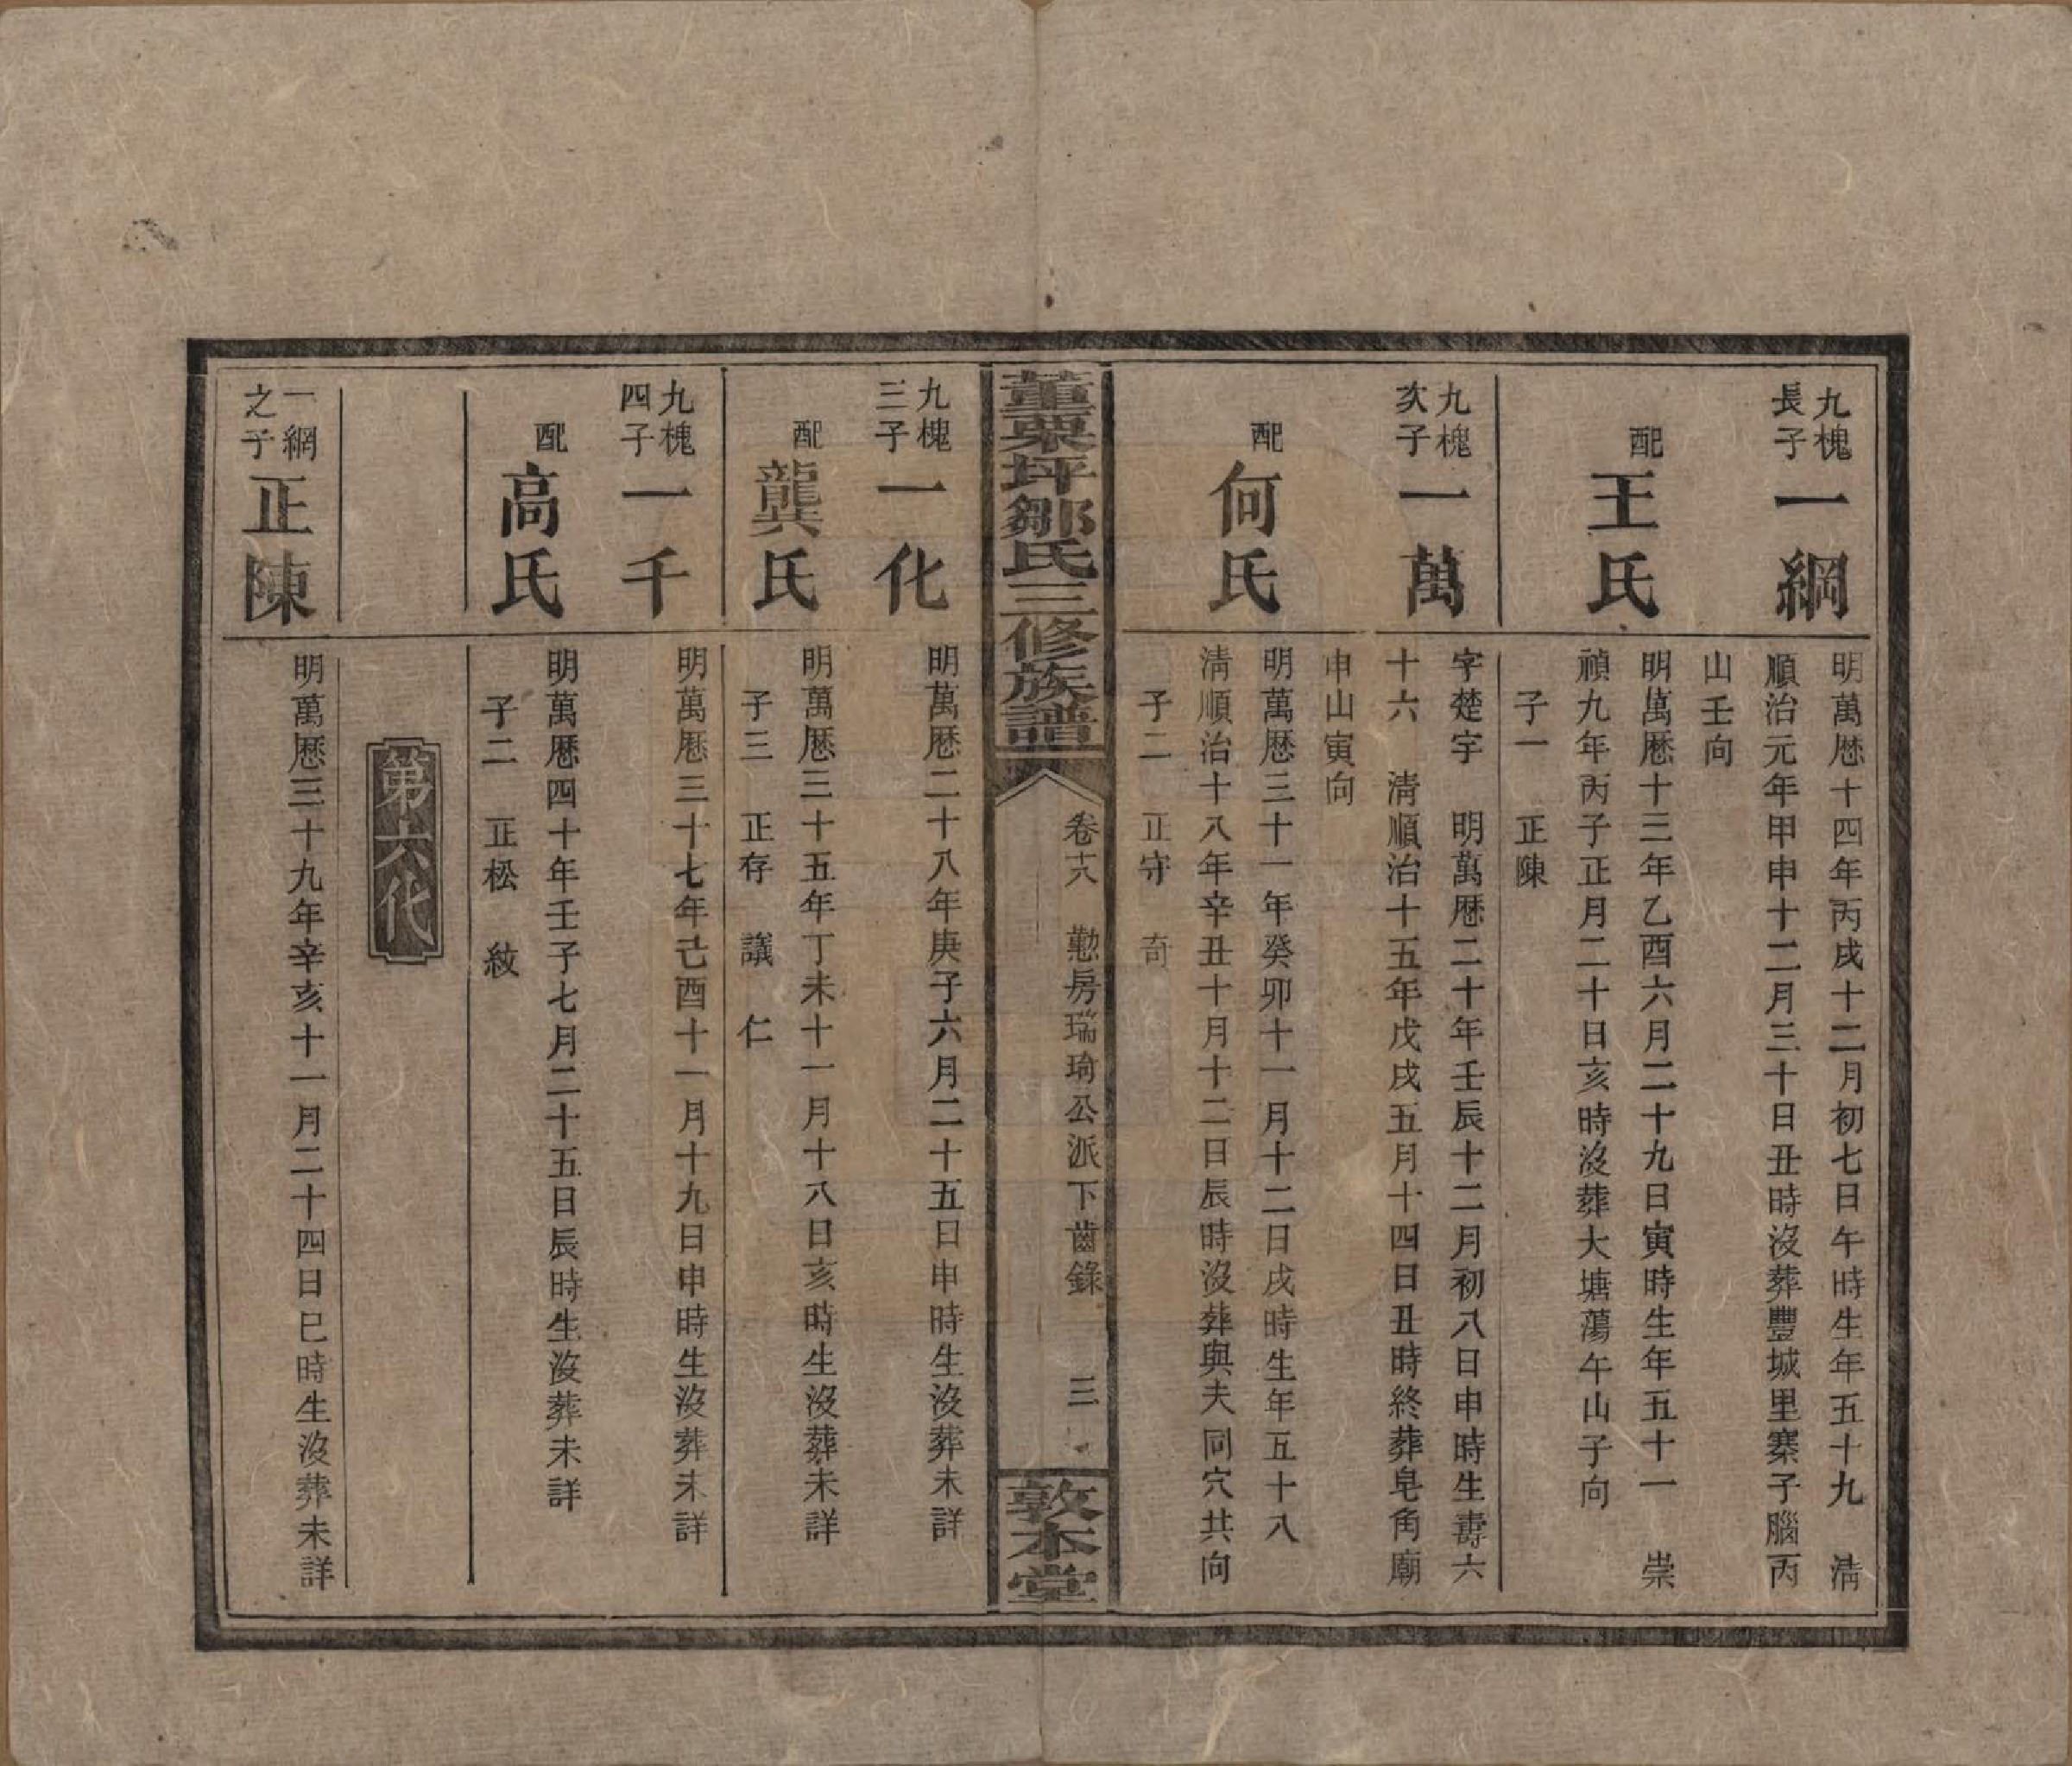 九槐
長子
一綱
明萬厯十四年丙戌十二月初七日午時生年五十九　清
順治元年甲申十二月三十日丑時沒葬豐城里寨子腦丙
山壬向
配
王氏
明萬厯十三年乙酉六月二十九日寅時生年五十一　崇
禎九年丙子正月二十日亥時沒葬大塘蕩午山子向
子一　正陳
九槐
次子
一萬
字楚宇　明萬厯二十年壬辰十二月初八日申時生壽六
十六　清順治十五年戊戌五月十四日丑時終葬皂角廟
申山寅向
配
何氏
明萬厯三十一年癸卯十一月十二日戌時生年五十八
清順治十八年辛丑十月十二日辰時沒葬與夫同穴共向
子二　正守　奇
董粟坪鄒氏三修族譜
卷十八　懃房瑞琦公派下齒錄　三
敦本堂
九槐
三子
一化
明萬厯二十八年庚子六月二十五日申時生沒葬未詳
配
龔氏
明萬厯三十五年丁未十一月十八日亥時生沒葬未詳
子三　正存　議　仁
九槐
四子
一千
明萬厯三十七年己酉十一月十九日申時生沒葬未詳
配
高氏
明萬厯四十年壬子七月二十五日辰時生沒葬未詳
子二　正松　紋
第六代
一綱
之子
正陳
明萬厯三十九年辛亥十一月二十四日巳時生沒葬未詳